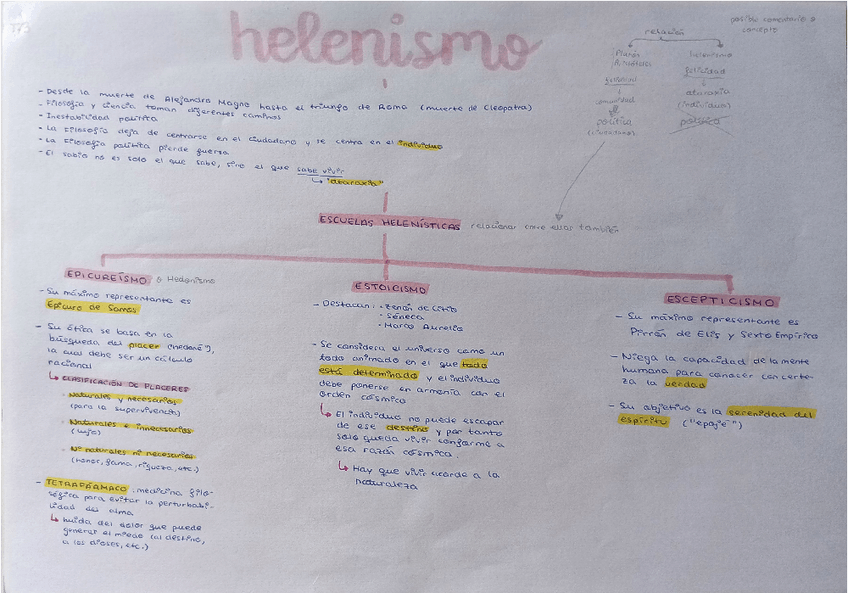 helenismo
posible comentario o
concepto
relación
Platón
Aristóteles
comunidad
política
(ciudadano)
helenismo
felicidad
ataraxia
(individuo)
política
- Desde la muerte de Alejandro Magno hasta el triunfo de Roma (muerte de Cleopatra)
- Filosofía y ciencia toman diferentes caminos
- Inestabilidad política
- La Filosofía deja de centrarse en el ciudadano y se centra en el individuo
- La Filosofía política pierde fuerza
- El sabio no es solo el que sabe, sino el que sabe vivir
"ataraxia"
ESCUELAS HELENÍSTICAS relacionar entre ellas también
EPICUREÍSMO o Hedonismo
- Su máximo representante es
Epicuro de Samos
- Su ética se basa en la
búsqueda del placer ("hedoné"),
la cual debe ser un cálculo
racional
CLASIFICACIÓN DE PLACERES
· Naturales y necesarios
(para la supervivencia)
· Naturales e innecesarios
(lujo)
· Ni naturales ni necesarios
(honor, fama, riqueza, etc.)
- TETRAFÁRMACO: medicina filo-
sófica para evitar la perturbabi-
lidad del alma
huida del dolor que puede
generar el miedo (al destino,
a los dioses, etc.)
ESTOICISMO
- Destacan: - Zenón de Citio
- Séneca
- Marco Aurelio
- Se considera el universo como un
todo animado en el que todo
está determinado y el individuo
debe ponerse en armonía con el
orden cósmico
El individuo no puede escapar
de ese destino y por tanto
solo queda vivir conforme a
esa razón cósmica.
Hay que vivir acorde a la
naturaleza
ESCEPTICISMO
- Su máximo representante es
Pirrón de Elis y Sexto Empírico
- Niega la capacidad de la mente
humana para conocer con certe-
za la verdad
- Su objetivo es la serenidad del
espíritu ("epojé")